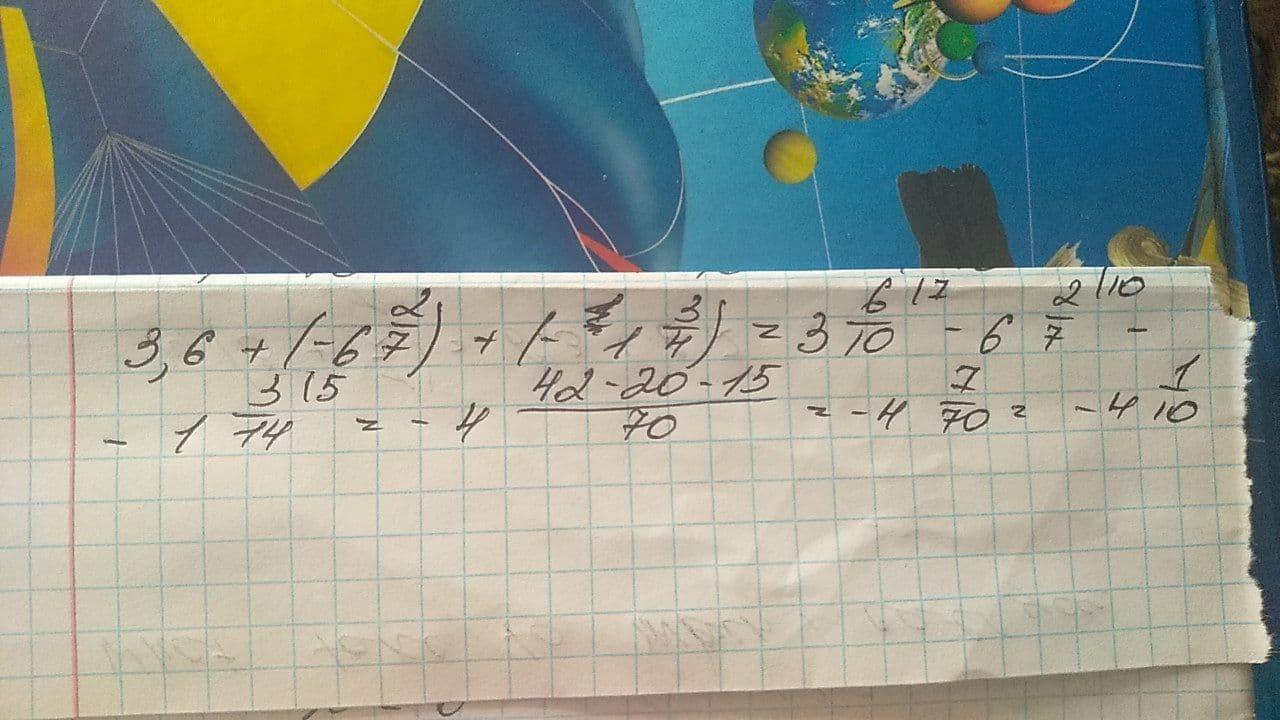 3,6 + (-6 2/7) + (- 1 3/4) = 3 6/10 |7 - 6 2/7 |10 -
- 1 3/14 |5 = - 4 (42-20-15)/70 = -4 7/70 = -4 1/10